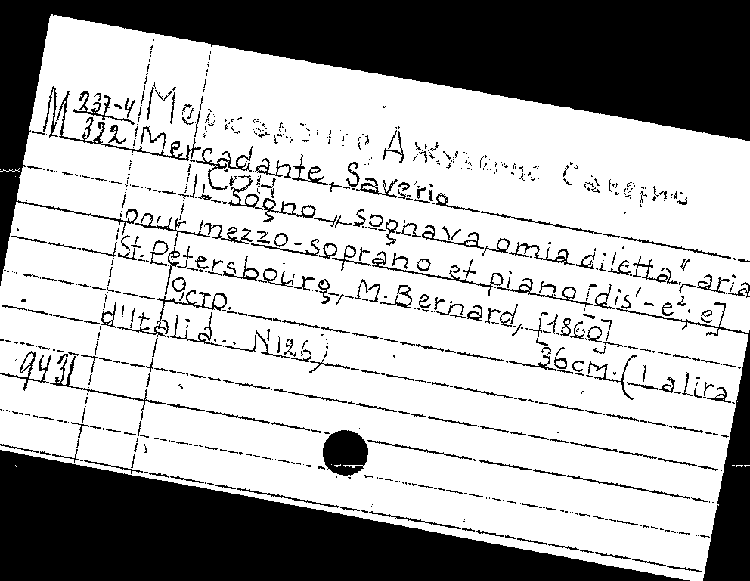 М 237-4/322 Меркаданте, Джузеппе Саверио
Mercadante, Saverio
СОН
IL sogno „ sognava, omia diletta", aria
pour mezzo-soprano et piano [dis'-e²; e]
St. Petersbourg, M. Bernard, [1860]
9стр. 36см. (La lira
d'Italia... N126)
9431